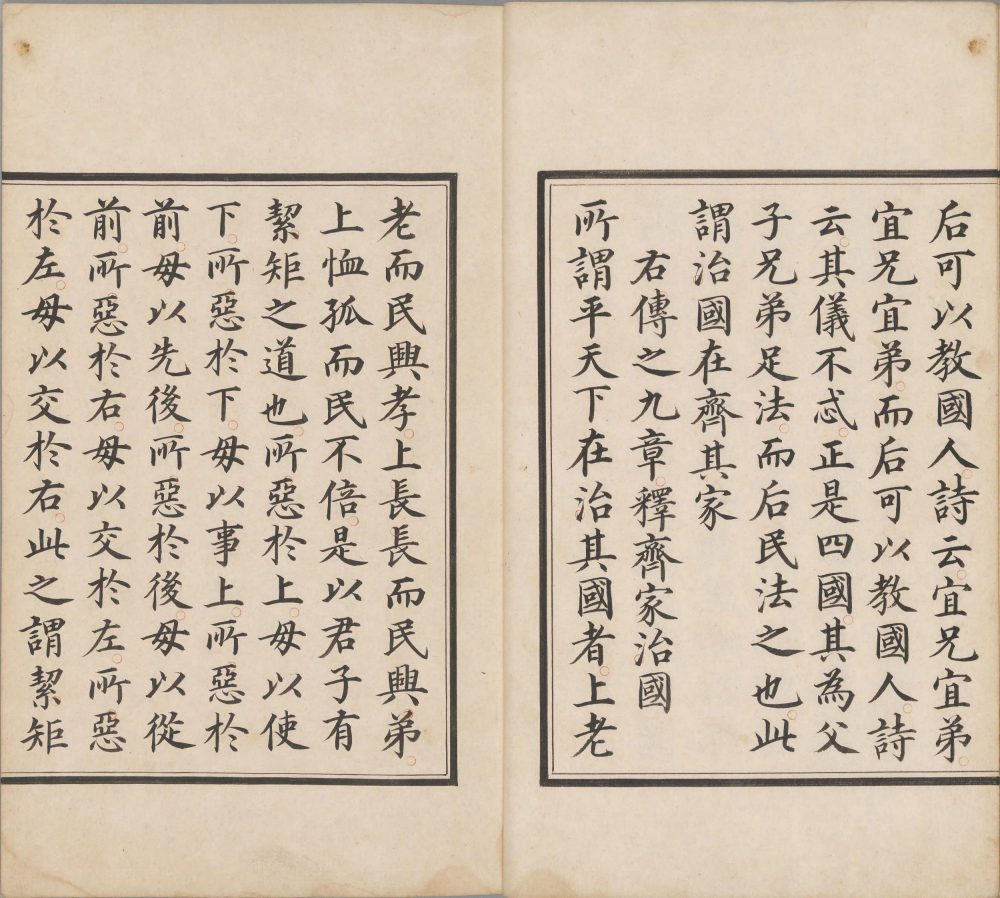 后可以教國人詩云宜兄宜弟
宜兄宜弟而后可以教國人詩
云其儀不忒正是四國其為父
子兄弟足法而后民法之也此
謂治國在齊其家
右傳之九章釋齊家治國
所謂平天下在治其國者上老
老而民興孝上長長而民興弟
上恤孤而民不倍是以君子有
絜矩之道也所惡於上毋以使
下所惡於下毋以事上所惡於
前毋以先後所惡於後毋以從
前所惡於右毋以交於左所惡
於左毋以交於右此之謂絜矩